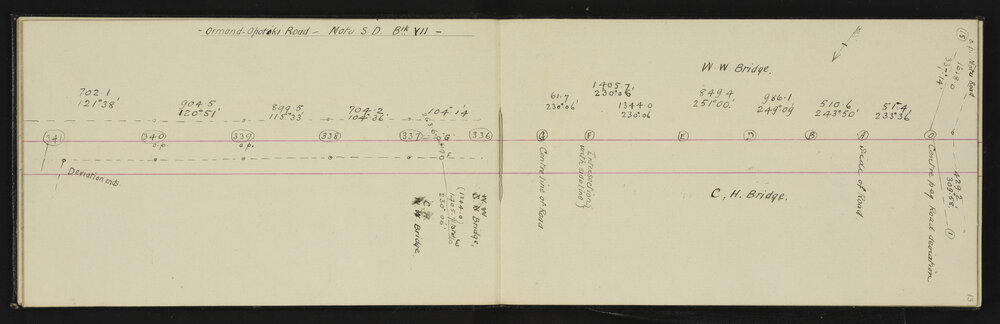 - Ormond-Opotiki Road - Motu S.D. Blk VII -
702.1
121°38'
904.5
120°51'
899.5
115°33'
704.2
104°36'
104°14'
341
340
339
338
337
336
o.p.
o.p.
Deviation ends.
W.W
Bridge.
(1344.0)
1405.7
230°06'
C.H
Bridge.
W.W. Bridge.
61.7
230°06'
1405.7
230°06'
1344.0
230.06
849.4
251°00'
986.1
249°09'
510.6
243°50'
51.4
233°36'
G
F
E
D
B
A
O
Centre line of Road
Intersection
with sideline
C.H. Bridge.
Side of Road.
Centre peg Road deviation
15
o.p. Motu Road
1618.0
337°14'
429.2
309°58'
1
15